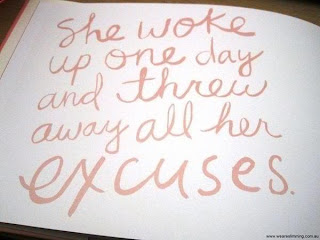 She woke
up one day
and threw
away all her
excuses.
www.weareallshining.com.au